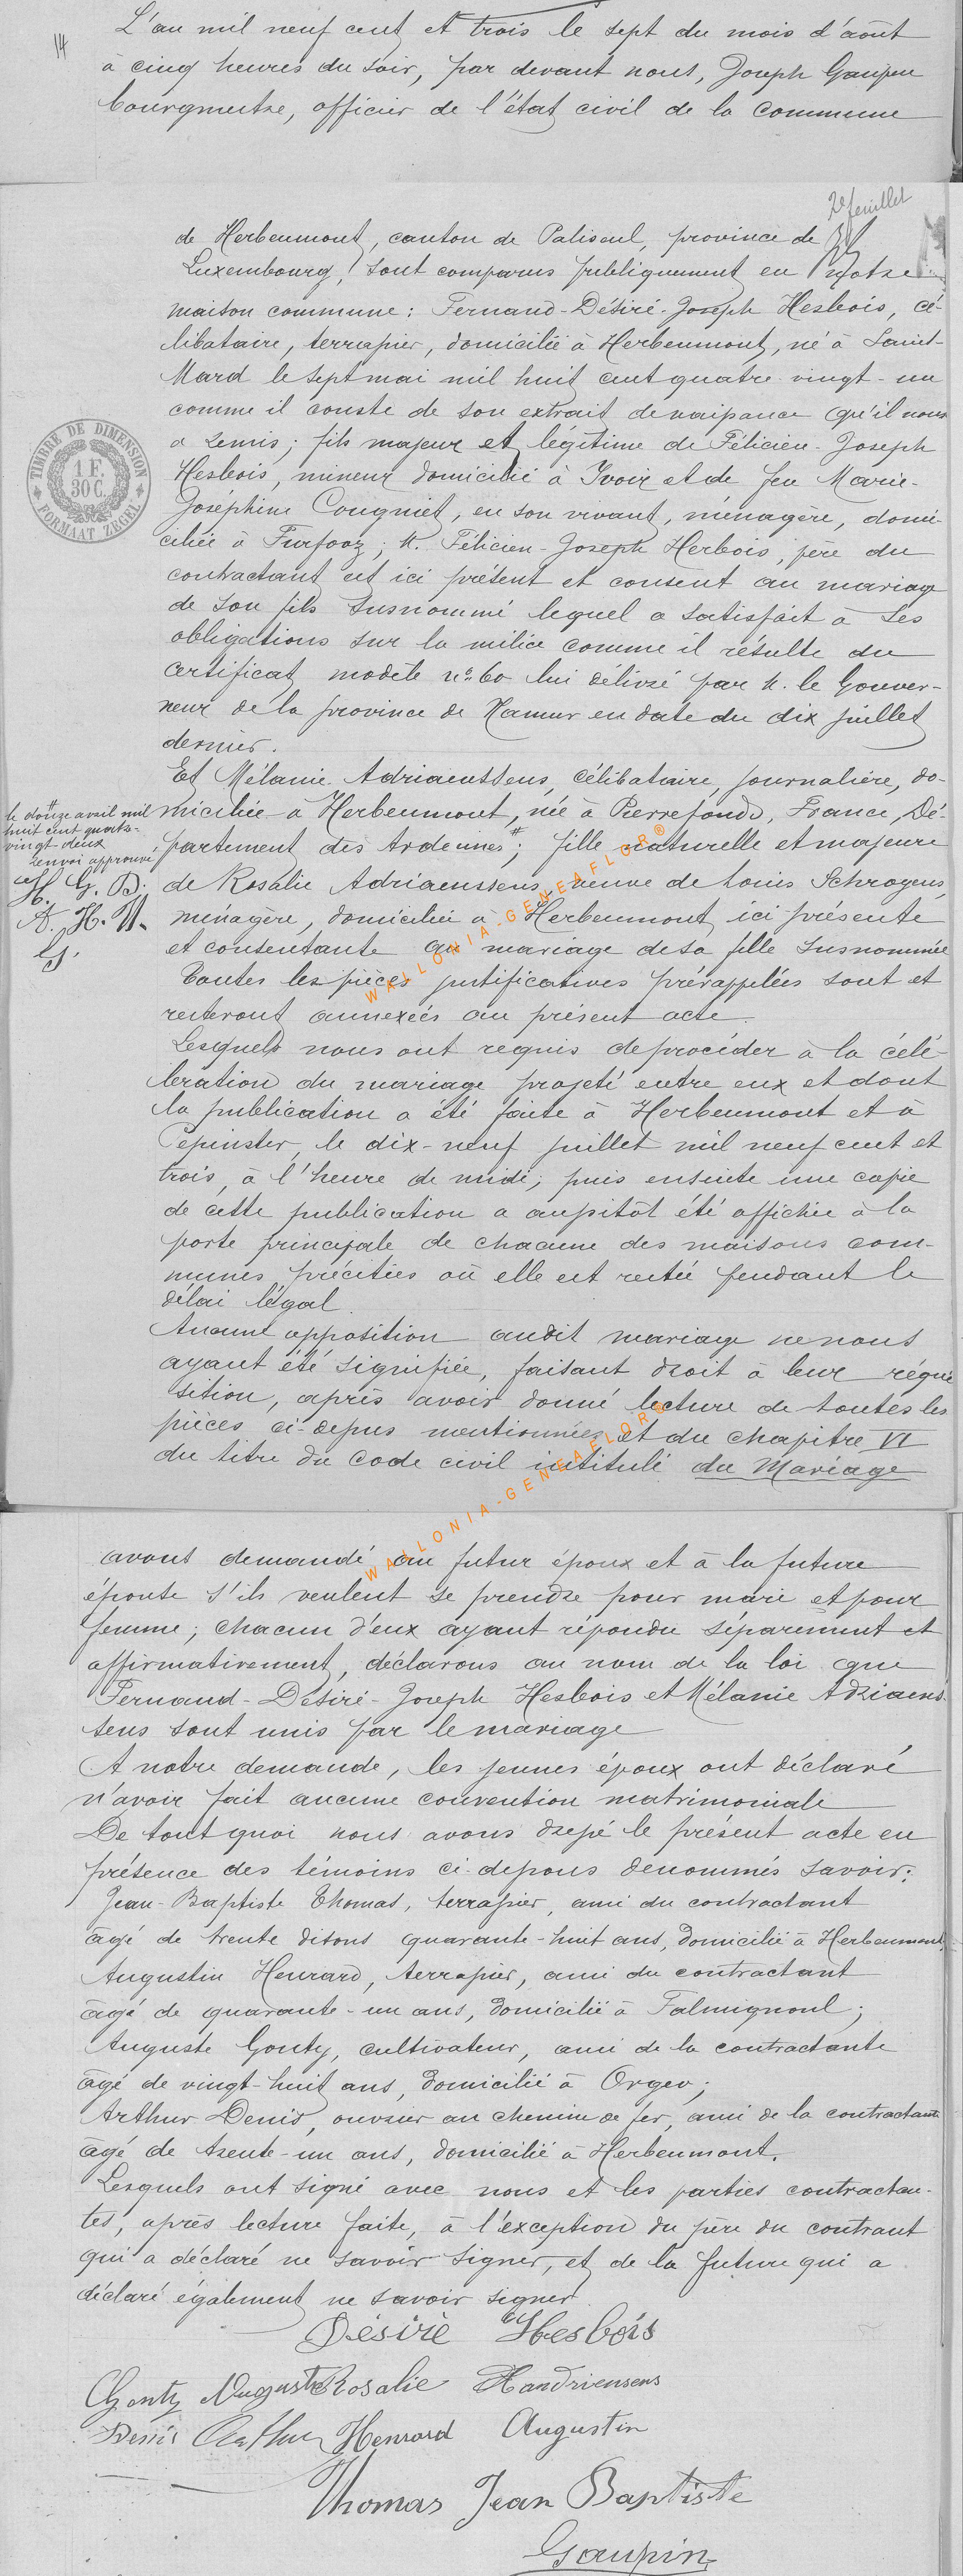 14
L'an mil neuf cent et trois le sept du mois d'août
à cinq heures du soir, par devant nous, Joseph Gaupin
bourgmestre, officier de l'état civil de la commune
2e feuillet
de Herbeumont, canton de Paliseul, province de
Luxembourg, sont comparus publiquement en notre
maison commune: Fernand-Désiré-Joseph Hesbois, cé-
libataire, terrassier, domicilié à Herbeumont, né à Saint-
Mard le sept mai mil huit cent quatre-vingt-un
comme il conste de son extrait de naissance qu'il nous
a remis; fils majeur et légitime de Félicien-Joseph
Hesbois, mineur domicilié à Yvoir et de feu Marie-
Joséphine Cougniet, en son vivant, ménagère, domi-
ciliée à Furfooz; M. Félicien-Joseph Herbois, père du
contractant est ici présent et consent au mariage
de son fils susnommé lequel a satisfait à ses
obligations sur la milice comme il résulte du
certificat modèle n° 60 lui délivré par M. le Gouver-
neur de la province de Namur en date du dix juillet
dernier.
Et Mélanie Adriaenssens, célibataire, journalière, do-
miciliée à Herbeumont, née à Pierrefonds, France, Dé-
partement des Ardennes #; fille naturelle et majeure
de Rosalie Adriaenssens, veuve de Louis Schroyens,
ménagère, domiciliée à Herbeumont, ici présente
et consentante au mariage de sa fille susnommée
Toutes les pièces justificatives prérappelées sont et
resteront annexées au présent acte.
Lesquels nous ont requis de procéder à la célé-
bration du mariage projeté entre eux et dont
la publication a été faite à Herbeumont et à
Pepinster, le dix-neuf juillet mil neuf cent et
trois, à l'heure de midi, puis ensuite une copie
de cette publication a aussitôt été affichée à la
porte principale de chacune des maisons com-
munes précitées où elle est restée pendant le
délai légal.
Aucune opposition audit mariage ne nous
ayant été signifiée, faisant droit à leur réqui
sition, après avoir donné lecture de toutes les
pièces ci-dessus mentionnées et du chapitre VI
du titre du Code civil intitulé du Mariage
# le douze avril mil
huit cent quatre-
vingt-deux
renvoi approuvé
H. G. D.
A. H. H.
G.
TIMBRE DE DIMENSION
1 F.
30 C.
FORMAAT ZEGEL
avons demandé au futur époux et à la future
épouse s'ils veulent se prendre pour mari et pour
femme; chacun d'eux ayant répondu séparement et
affirmativement, déclarons au nom de la loi que
Fernand-Désiré-Joseph Hesbois et Mélanie Adriaens-
sens sont unis par le mariage
A notre demande, les jeunes époux ont déclaré
n'avoir fait aucune convention matrimoniale
De tout quoi nous avons dressé le présent acte en
présence des témoins ci-dessous denommés savoir:
Jean-Baptiste Thomas, terrassier, ami du contractant
âgé de trente disons quarante-huit ans, domicilié à Herbeumont,
Augustin Henrard, terrassier, ami du contractant
âgé de quarante-un ans, domicilié à Falmignoul;
Auguste Gonty, cultivateur, ami de la contractante
âgé de vingt-huit ans, domicilié à Orgeo;
Arthur Denis, ouvrier au chemin de fer, ami de la contractante
âgé de trente-un ans, domicilié à Herbeumont.
Lesquels ont signé avec nous et les parties contractan-
tes, après lecture faite, à l'exception du père du contrant
qui a déclaré ne savoir signer, et de la future qui a
déclaré également ne savoir signer
Désiré Hesbois
Gonty Auguste Rosalie Handriensens
Denis Arthur Henrard Augustin
Thomas Jean Baptiste
Gaupin
WALLONIA-GENEAFLOR®
WALLONIA-GENEAFLOR®